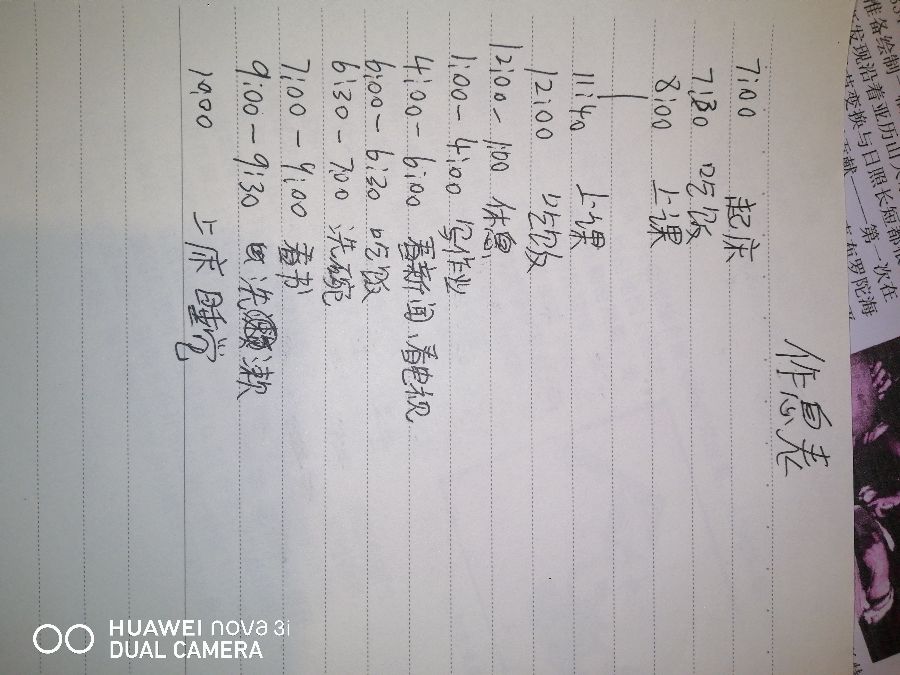 作息表
7:00 起床
7:30 吃饭
8:00 上课
|
11:40 上课
12:00 吃饭
12:00-1:00 休息
1:00-4:00 写作业
4:00-6:00 看新闻、看电视
6:00-6:30 吃饭
6:30-7:00 洗碗
7:00-9:00 看书
9:00-9:30 洗漱
10:00 上床睡觉
准备绘制
发现沿着亚历山大
变换与日照长短都
贡献——第一次在
布罗陀海
HUAWEI nova 3i
DUAL CAMERA